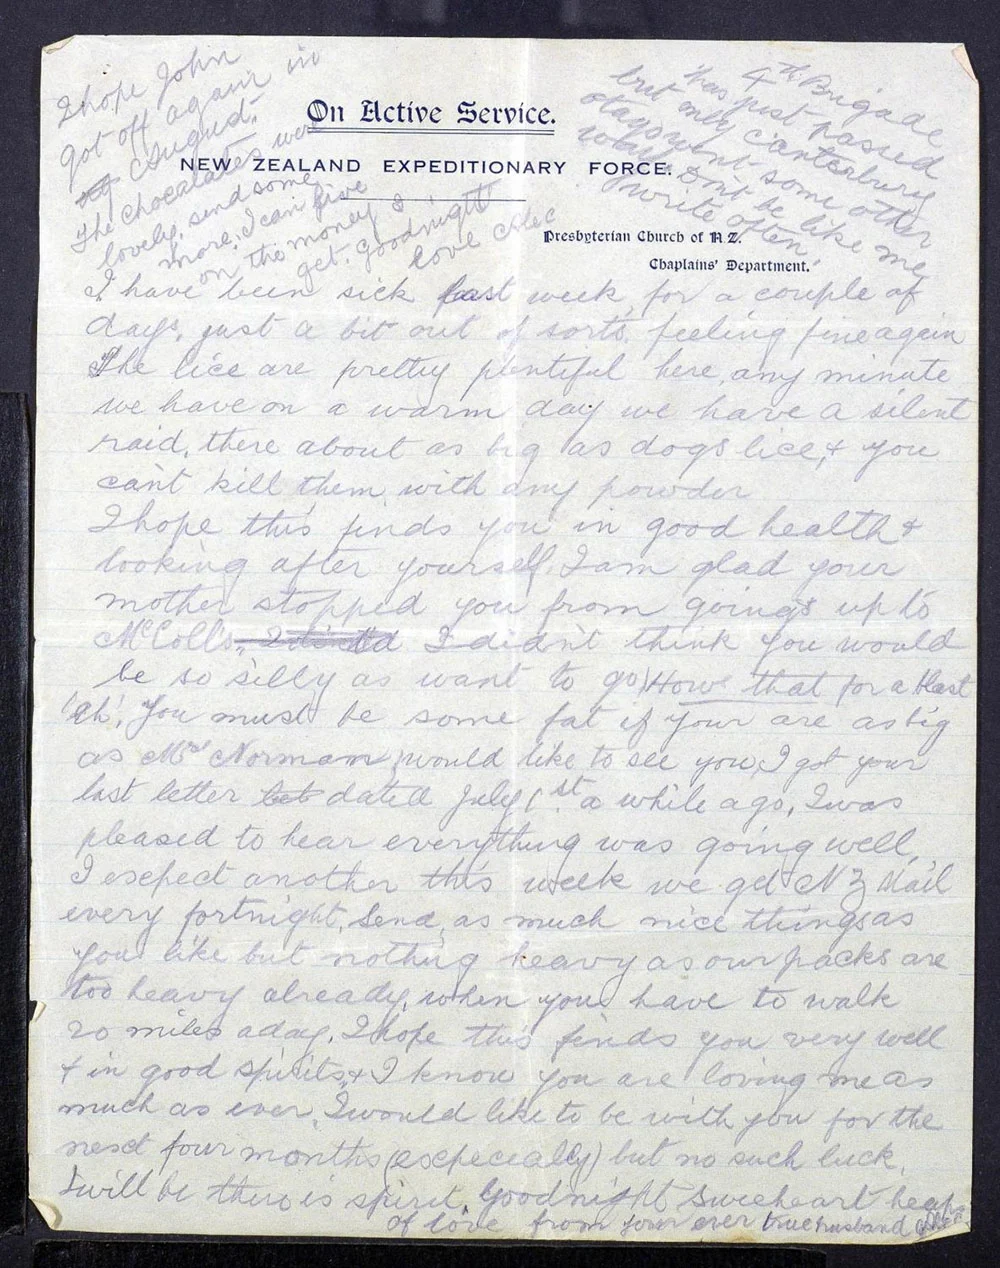 On Active Service.
NEW ZEALAND EXPEDITIONARY FORCE.
Presbyterian Church of N.Z.
Chaplains' Department.
I hope John
got off again in
August.
The chocolates were
lovely, send some
more, I can give
on the money I
get. Goodnight
love Alec
4th Brigade
has just passed
but only Canterbury
otago went some other
way. Dont be like me
write often
I have been sick last week, for a couple of
days, just a bit out of sorts, feeling fine again
The lice are pretty plentiful here, any minute
we have on a warm day we have a silent
raid, there about as big as dogs lice, & you
can't kill them with any powder
I hope this finds you in good health &
looking after yourself. I am glad your
mother stopped you from going up to
McColls, I didn't think you would
be so silly as want to go, How's that for a blast
'eh'. You must be some fat if your are as big
as Mrs Norman, would like to see you, I got your
last letter dated July 1st a while ago, I was
pleased to hear everything was going well,
I expect another this week we get NZ Mail
every fortnight, Send as much nice things as
you like but nothing heavy as our packs are
too heavy already, when you have to walk
20 miles a day. I hope this finds you very well
& in good spirits, & I know you are loving me as
much as ever, I would like to be with you for the
next four months (especeally) but no such luck.
I will be there is spirit. Goodnight Sweeheart heaps
of love from your ever true husband Alec